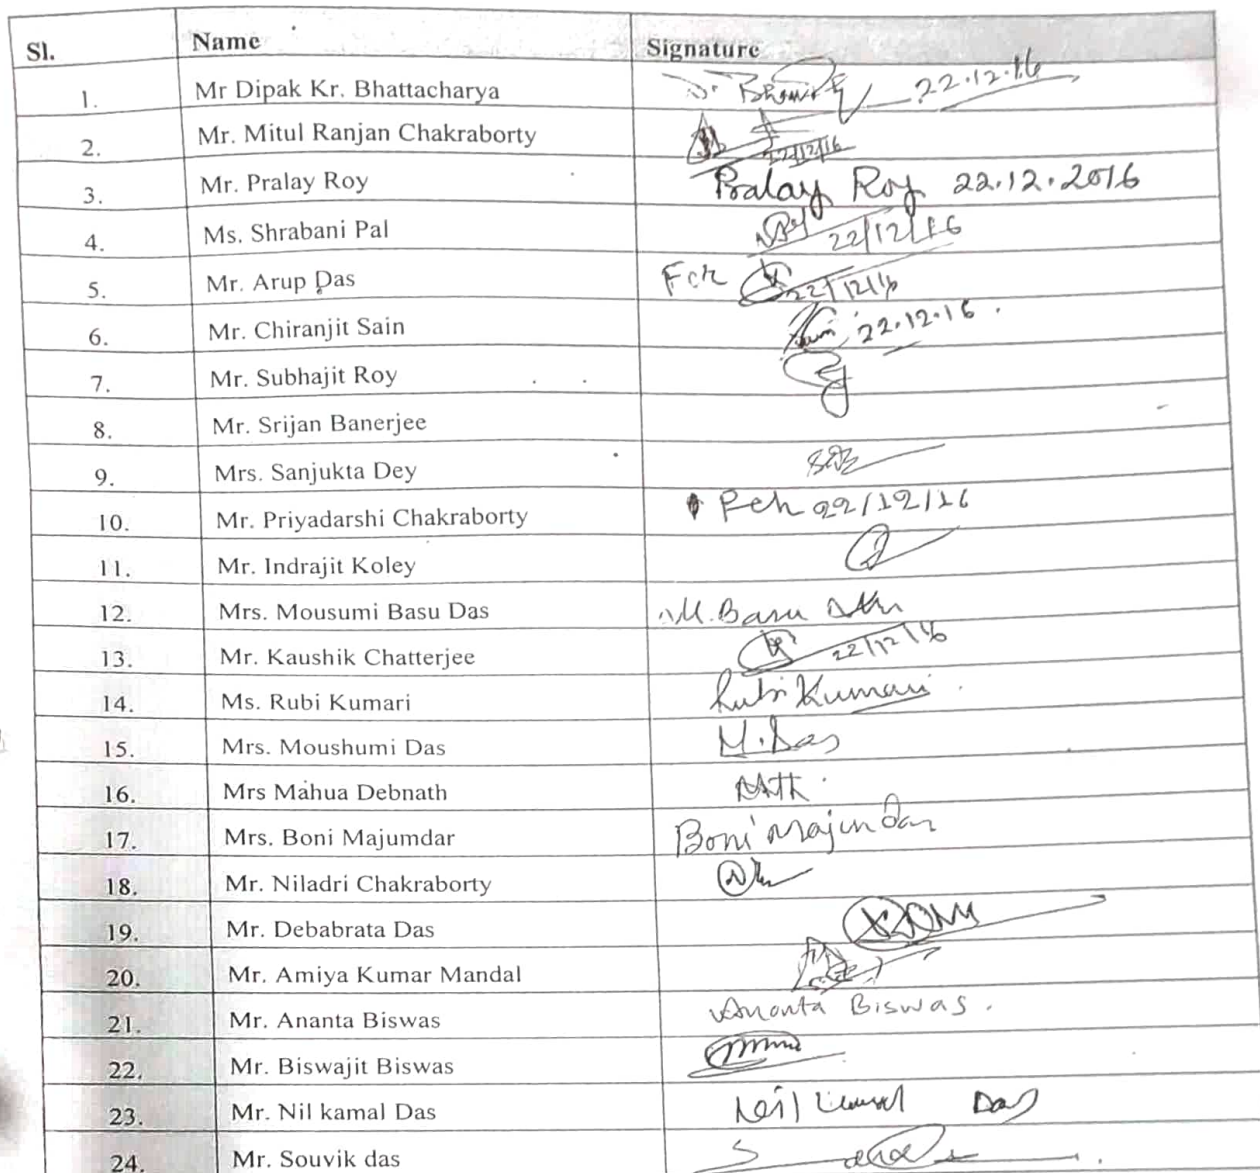 Sl. Name Signature
1. Mr Dipak Kr. Bhattacharya 22.12.16
2. Mr. Mitul Ranjan Chakraborty 22/12/16
3. Mr. Pralay Roy Pralay Roy 22.12.2016
4. Ms. Shrabani Pal 22/12/16
5. Mr. Arup Das For 22/12/16
6. Mr. Chiranjit Sain 22.12.16.
7. Mr. Subhajit Roy
8. Mr. Srijan Banerjee
9. Mrs. Sanjukta Dey
10. Mr. Priyadarshi Chakraborty Pch 22/12/16
11. Mr. Indrajit Koley
12. Mrs. Mousumi Basu Das M. Basu Das
13. Mr. Kaushik Chatterjee 22/12/16
14. Ms. Rubi Kumari Rubi Kumari
15. Mrs. Moushumi Das M. Das
16. Mrs Mahua Debnath
17. Mrs. Boni Majumdar Boni Majumdar
18. Mr. Niladri Chakraborty
19. Mr. Debabrata Das
20. Mr. Amiya Kumar Mandal
21. Mr. Ananta Biswas Ananta Biswas.
22. Mr. Biswajit Biswas
23. Mr. Nil kamal Das Nil Kamal Das
24. Mr. Souvik das